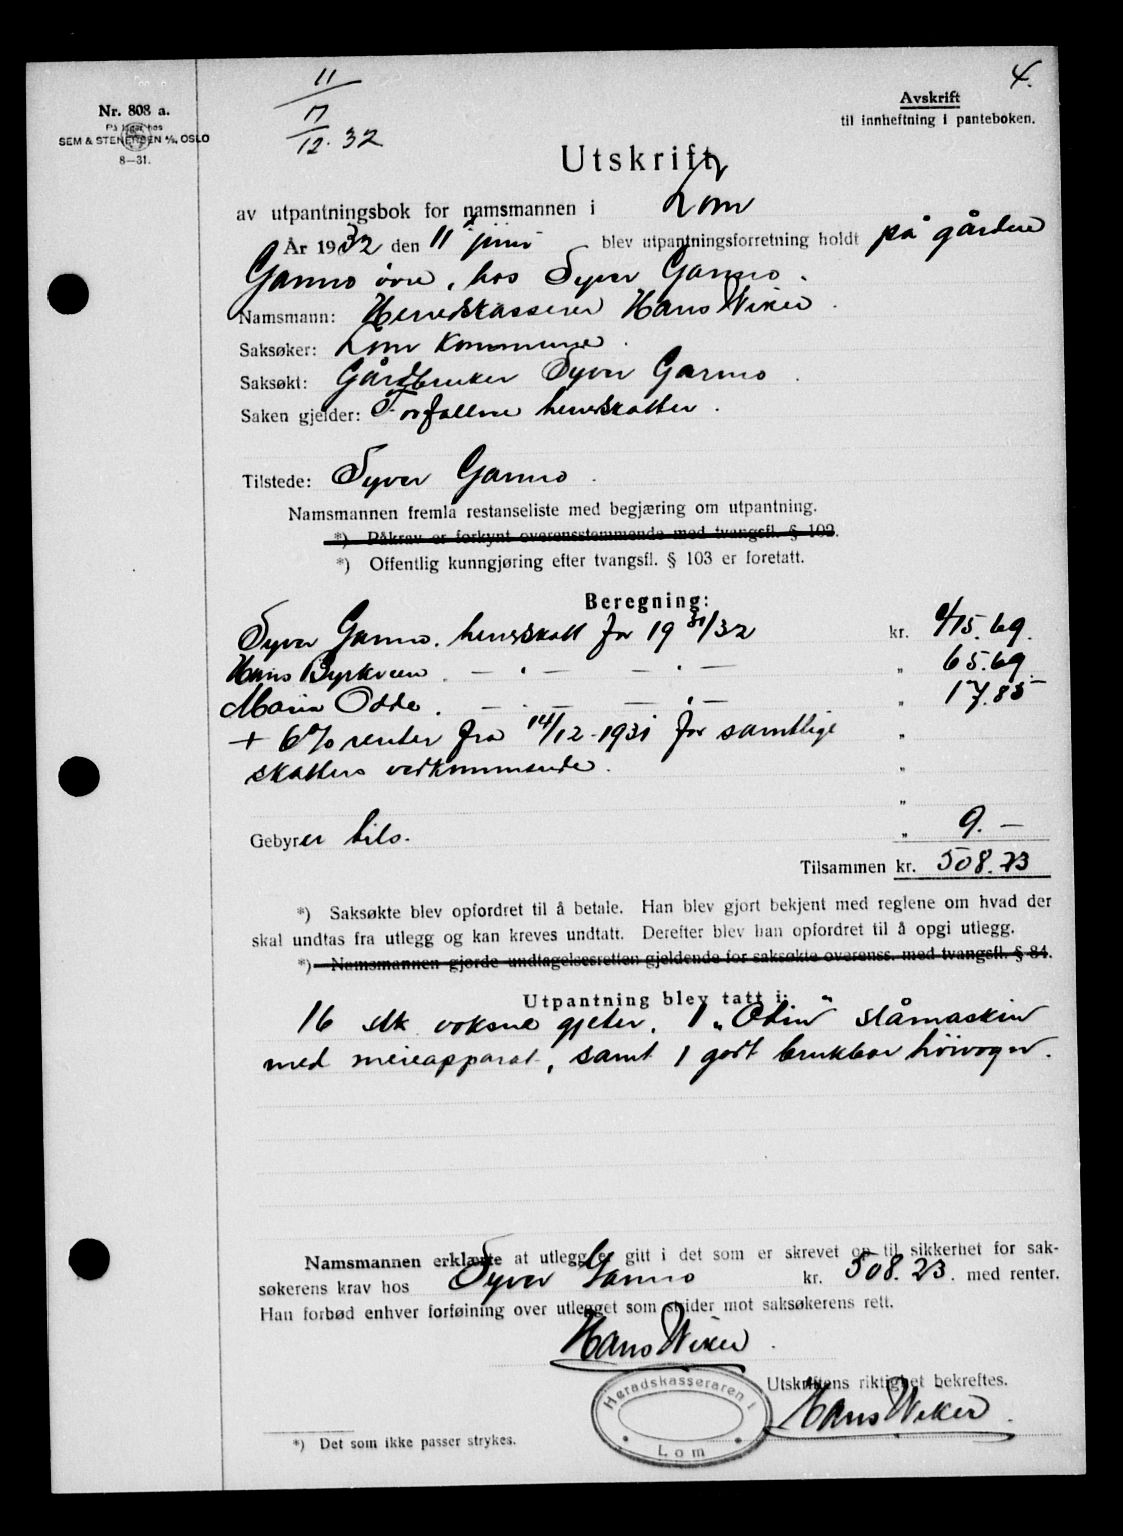 4.
11
17
12. 32
Nr. 808 a.
På lager hos
SEM & STENERSEN A/S, OSLO
8—31.
Avskrift
til innheftning i panteboken.
Utskrift
av utpantningsbok for namsmannen i Lom
År 1932 den 11 juni blev utpantningsforretning holdt på gården
Garmo övre, hos Syver Garmo.
Namsmann: Herredskasserer Hans Wiker.
Saksøker: Lom Kommune.
Saksøkt: Gårdbruker Syver Garmo.
Saken gjelder: Forfallne herredskatter.
Tilstede: Syver Garmo.
Namsmannen fremla restanseliste med begjæring om utpantning.
*) Påkrav er forkynt overensstemmende med tvangsfl. § 102.
*) Offentlig kunngjøring efter tvangsfl. § 103 er foretatt.
Beregning:
Syver Garmo. herredskatt for 19 31/32 kr. 415.69.
Hans Byrkveen. — . — — . — „ 65.69
Maria Odde. — . — — . — „ 17.85
+ 6% renter fra 14/12-1931 for samtlige „
skatters vedkommende. „
„
Gebyrer tils. „ 9.—
Tilsammen kr. 508.23
*) Saksøkte blev opfordret til å betale. Han blev gjort bekjent med reglene om hvad der
skal undtas fra utlegg og kan kreves undtatt. Derefter blev han opfordret til å opgi utlegg.
*) Namsmannen gjorde undtagelsesretten gjeldende for saksøkte overenss. med tvangsfl. § 84.
Utpantning blev tatt i:
16 stk voksne gjeter, 1 „Odin" slåmaskin
med meieapparat, samt 1 godt brukbar höivogn.
Namsmannen erklærte at utlegg er gitt i det som er skrevet op til sikkerhet for sak-
søkerens krav hos Syver Garmo kr. 508.23. med renter.
Han forbød enhver forføining over utlegget som strider mot saksøkerens rett.
Hans Wiker.
Utskriftens riktighet bekreftes.
Hans Wiker.
Heradskasseraren i
Lom
*) Det som ikke passer strykes.